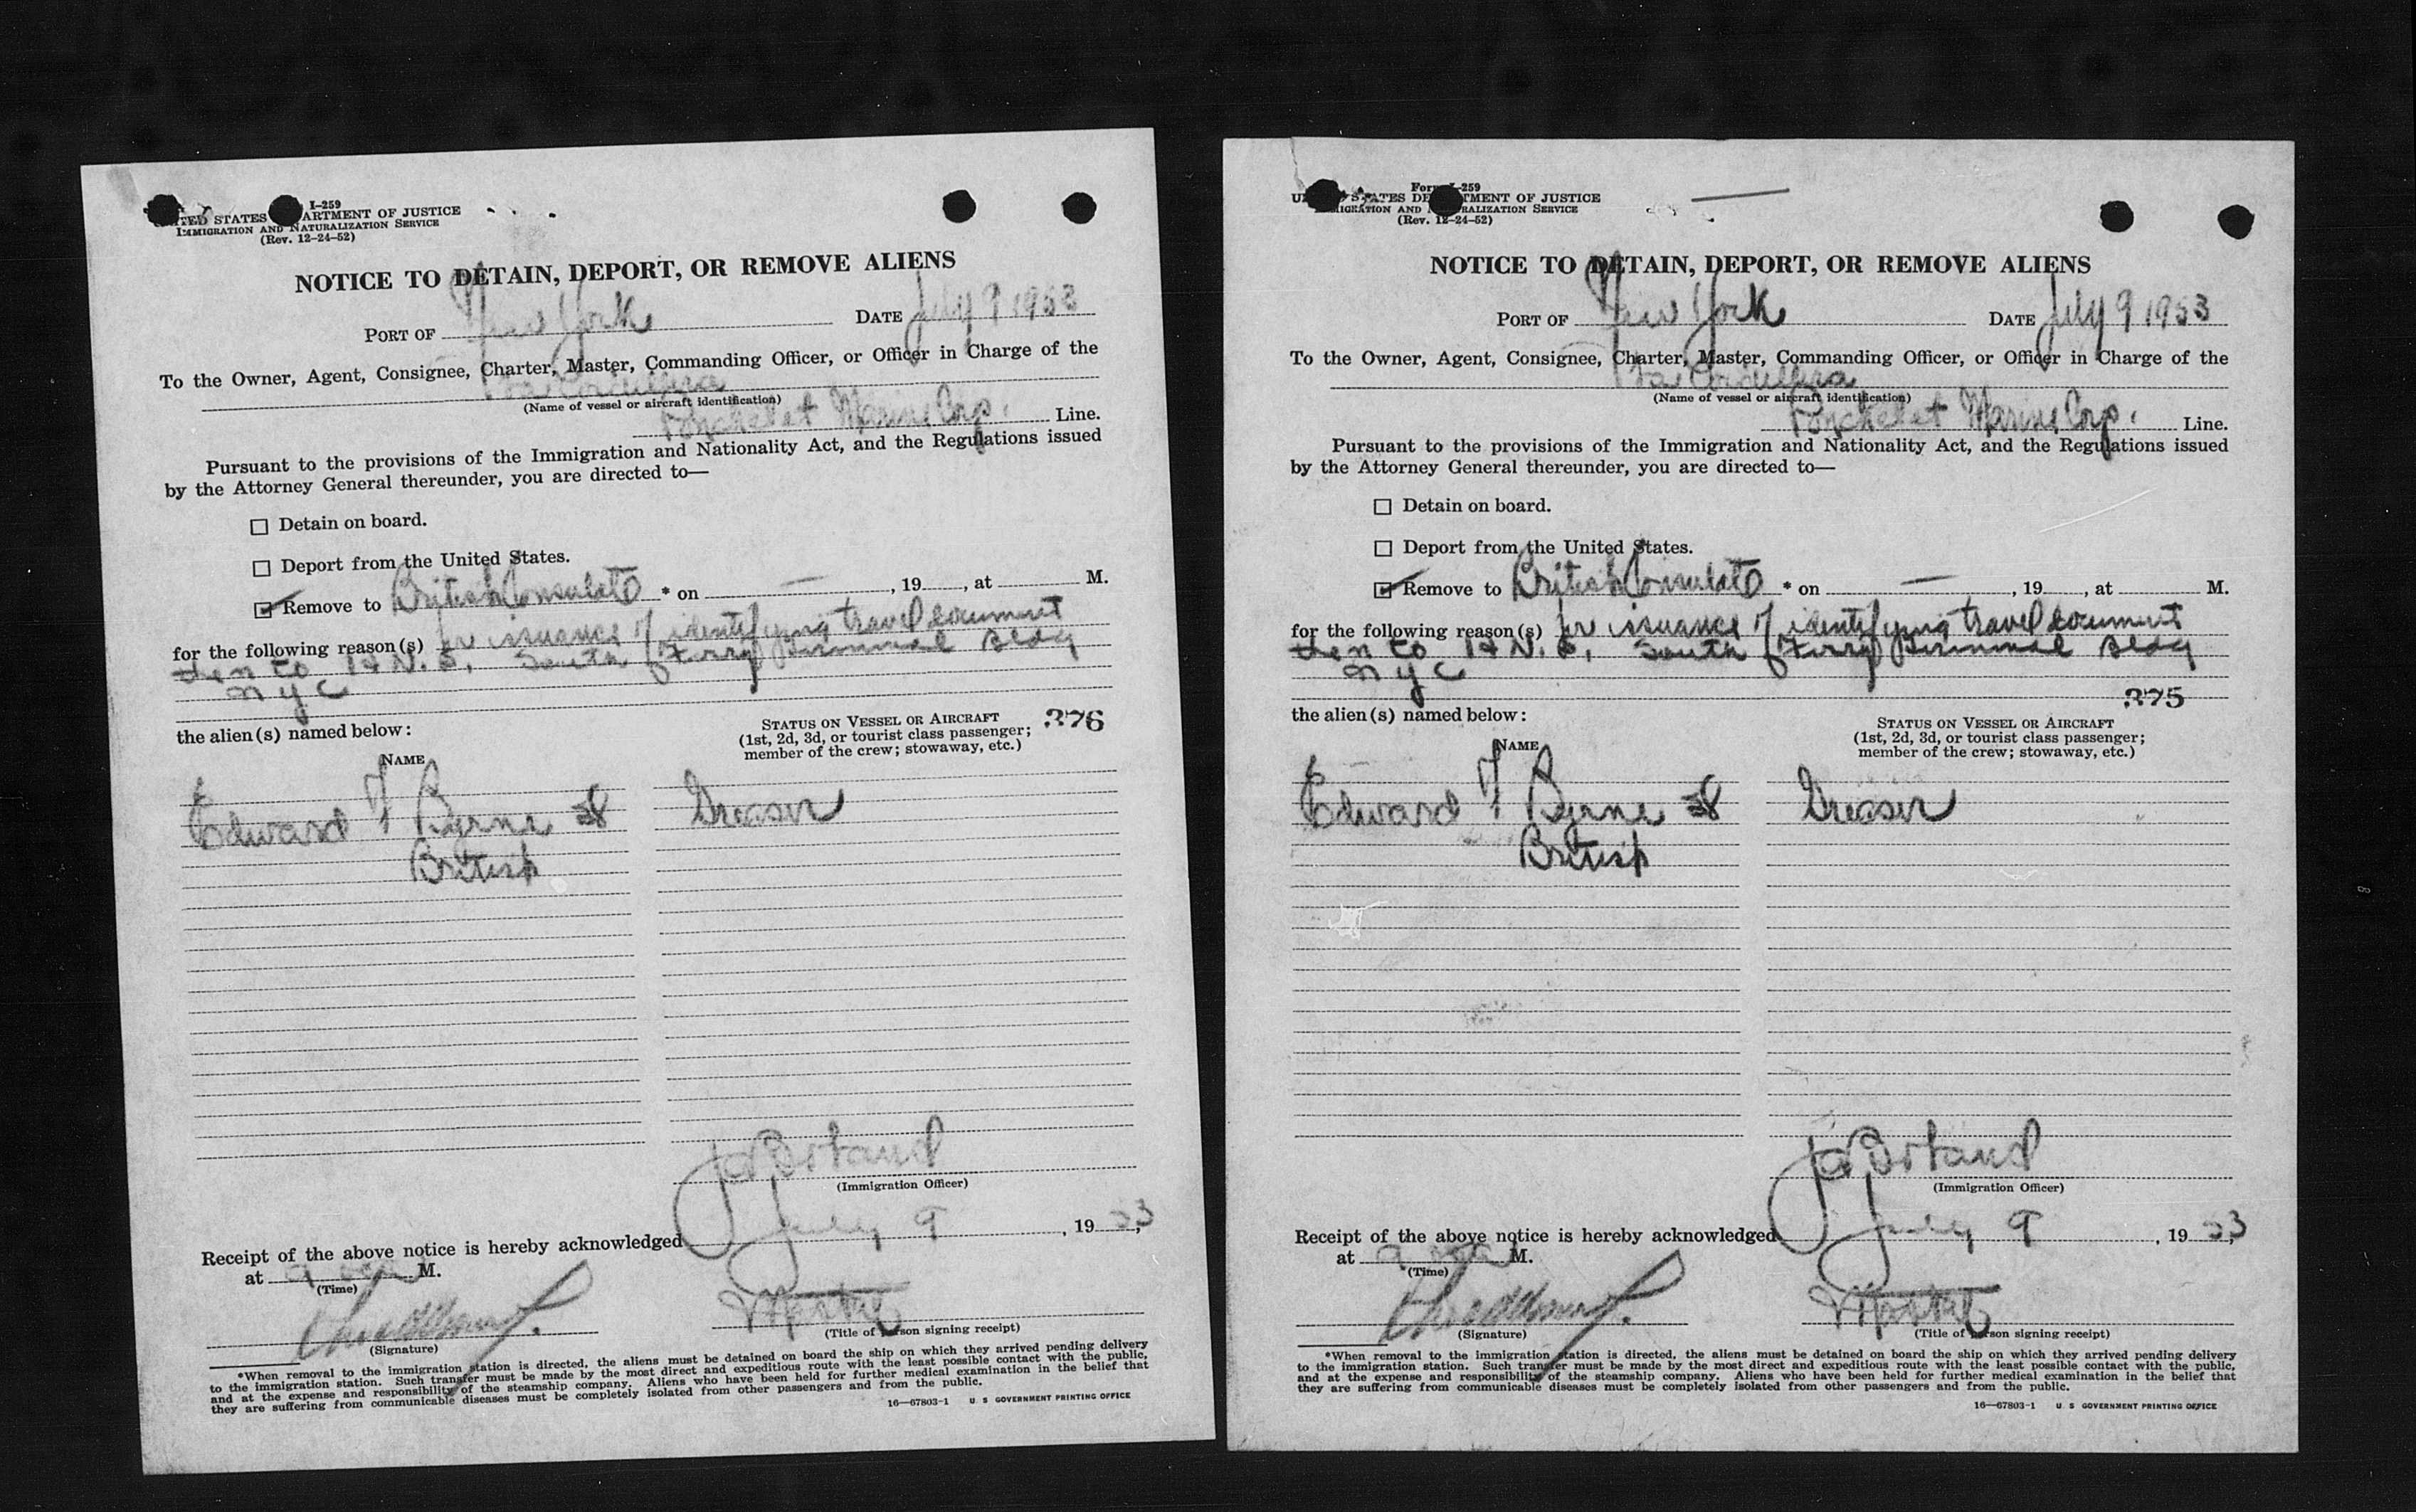 I-259
UNITED STATES DEPARTMENT OF JUSTICE
IMMIGRATION AND NATURALIZATION SERVICE
(Rev. 12-24-52)
NOTICE TO DETAIN, DEPORT, OR REMOVE ALIENS
PORT OF New York DATE July 9 1953
To the Owner, Agent, Consignee, Charter, Master, Commanding Officer, or Officer in Charge of the
La Cordillera
(Name of vessel or aircraft identification)
Marine Corp. Line.
Pursuant to the provisions of the Immigration and Nationality Act, and the Regulations issued
by the Attorney General thereunder, you are directed to—
☐ Detain on board.
☐ Deport from the United States.
☑ Remove to British Consulate * on — , 19 , at M.
for the following reason(s) for issuance of identifying travel document
then to I & N. S. South Ferry Terminal Bldg
N Y C
376
the alien(s) named below:
STATUS ON VESSEL OR AIRCRAFT
(1st, 2d, 3d, or tourist class passenger;
member of the crew; stowaway, etc.)
NAME
Edward F Byrne 28 Greaser
British
(Immigration Officer)
Receipt of the above notice is hereby acknowledged July 9, 1953,
at 9 M.
(Time)
Master
(Signature)
(Title of person signing receipt)
*When removal to the immigration station is directed, the aliens must be detained on board the ship on which they arrived pending delivery
to the immigration station. Such transfer must be made by the most direct and expeditious route with the least possible contact with the public,
and at the expense and responsibility of the steamship company. Aliens who have been held for further medical examination in the belief that
they are suffering from communicable diseases must be completely isolated from other passengers and from the public.
16—67803-1 U. S. GOVERNMENT PRINTING OFFICE
Form I-259
UNITED STATES DEPARTMENT OF JUSTICE
IMMIGRATION AND NATURALIZATION SERVICE
(Rev. 12-24-52)
NOTICE TO DETAIN, DEPORT, OR REMOVE ALIENS
PORT OF New York DATE July 9 1953
To the Owner, Agent, Consignee, Charter, Master, Commanding Officer, or Officer in Charge of the
La Cordillera
(Name of vessel or aircraft identification)
Marine Corp. Line.
Pursuant to the provisions of the Immigration and Nationality Act, and the Regulations issued
by the Attorney General thereunder, you are directed to—
☐ Detain on board.
☐ Deport from the United States.
☑ Remove to British Consulate * on — , 19 , at M.
for the following reason(s) for issuance of identifying travel document
then to I & N. S. South Ferry Terminal Bldg
N Y C
375
the alien(s) named below:
STATUS ON VESSEL OR AIRCRAFT
(1st, 2d, 3d, or tourist class passenger;
member of the crew; stowaway, etc.)
NAME
Edward F Byrne 28 Greaser
British
(Immigration Officer)
Receipt of the above notice is hereby acknowledged July 9, 1953,
at 9 M.
(Time)
Master
(Signature)
(Title of person signing receipt)
*When removal to the immigration station is directed, the aliens must be detained on board the ship on which they arrived pending delivery
to the immigration station. Such transfer must be made by the most direct and expeditious route with the least possible contact with the public,
and at the expense and responsibility of the steamship company. Aliens who have been held for further medical examination in the belief that
they are suffering from communicable diseases must be completely isolated from other passengers and from the public.
16—67803-1 U. S. GOVERNMENT PRINTING OFFICE